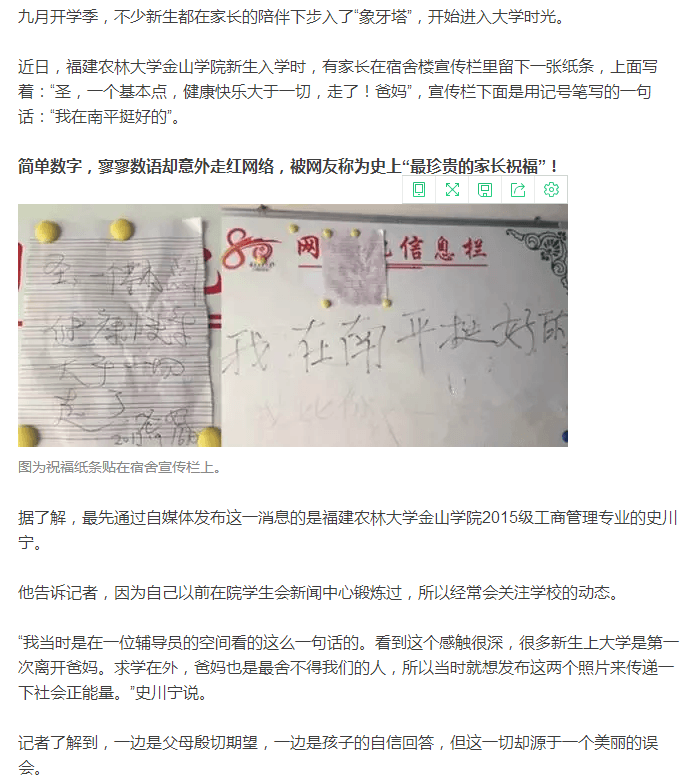 九月开学季，不少新生都在家长的陪伴下步入了“象牙塔”，开始进入大学时光。
近日，福建农林大学金山学院新生入学时，有家长在宿舍楼宣传栏里留下一张纸条，上面写
着：“圣，一个基本点，健康快乐大于一切，走了！爸妈”，宣传栏下面是用记号笔写的一句
话：“我在南平挺好的”。
简单数字，寥寥数语却意外走红网络，被网友称为史上“最珍贵的家长祝福”！
圣，一个基本点
健康快乐
大于一切
走了
爸妈
网
信息栏
我在南平挺好的
图为祝福纸条贴在宿舍宣传栏上。
据了解，最先通过自媒体发布这一消息的是福建农林大学金山学院2015级工商管理专业的史川
宁。
他告诉记者，因为自己以前在院学生会新闻中心锻炼过，所以经常会关注学校的动态。
“我当时是在一位辅导员的空间看的这么一句话的。看到这个感触很深，很多新生上大学是第一
次离开爸妈。求学在外，爸妈也是最舍不得我们的人，所以当时就想发布这两个照片来传递一
下社会正能量。”史川宁说。
记者了解到，一边是父母殷切期望，一边是孩子的自信回答，但这一切却源于一个美丽的误
会。